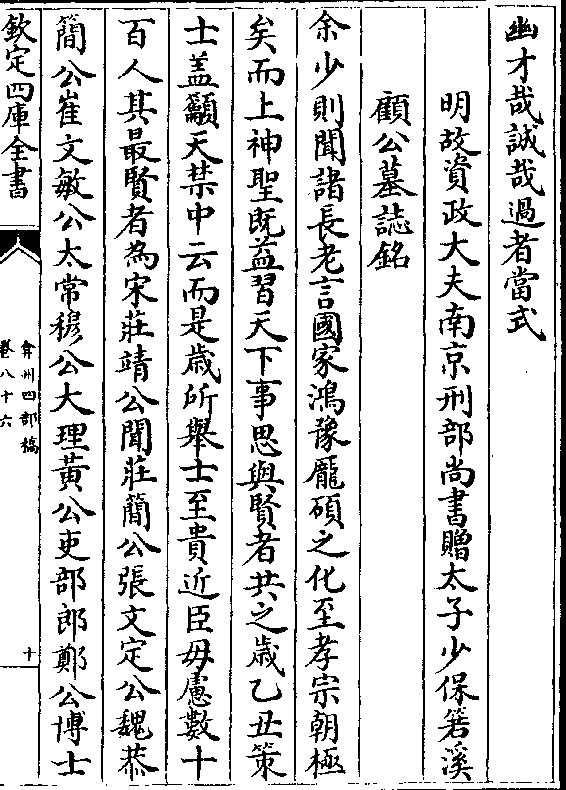 幽才哉誠哉過者當式
明故資政大夫南京刑部尚書贈太子少保箬溪
顧公墓誌銘
余少則聞諸長老言國家鴻豫龎碩之化至孝宗朝極
矣而上神聖既益習天下事思與賢者共之歲乙丑策
士盖籲天禁中云而是歲所舉士至貴近臣毋慮數十
百人其最賢者為宋莊靖公聞莊簡公張文定公魏恭
簡公崔文敏公太常穆公大理黃公吏部郎鄭公博士
欽定四庫全書
弇州四部稿
卷八十六
十